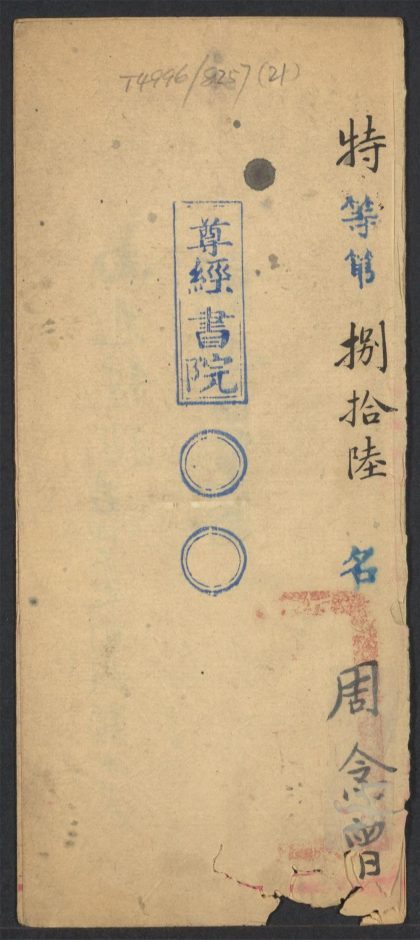 T4996/8257(21)
特等第捌拾陸名周念曾
尊經書院